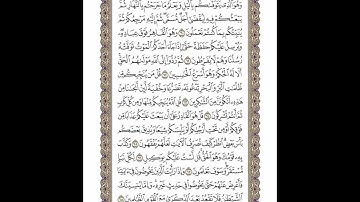 وَهُوَ ٱلَّذِي يَتَوَفَّىٰكُم بِٱلَّيْلِ وَيَعْلَمُ مَا جَرَحْتُم بِٱلنَّهَارِ ثُمَّ
يَبْعَثُكُمْ فِيهِ لِيُقْضَىٰٓ أَجَلٌ مُّسَمًّى ثُمَّ إِلَيْهِ مَرْجِعُكُمْ ثُمَّ
يُنَبِّئُكُم بِمَا كُنتُمْ تَعْمَلُونَ ٦٠ وَهُوَ ٱلْقَاهِرُ فَوْقَ عِبَادِهِۦ
وَيُرْسِلُ عَلَيْكُمْ حَفَظَةً حَتَّىٰٓ إِذَا جَآءَ أَحَدَكُمُ ٱلْمَوْتُ تَوَفَّتْهُ
رُسُلُنَا وَهُمْ لَا يُفَرِّطُونَ ٦١ ثُمَّ رُدُّوٓا۟ إِلَى ٱللَّهِ مَوْلَىٰهُمُ ٱلْحَقِّ
أَلَا لَهُ ٱلْحُكْمُ وَهُوَ أَسْرَعُ ٱلْحَٰسِبِينَ ٦٢ قُلْ مَن يُنَجِّيكُم
مِّن ظُلُمَٰتِ ٱلْبَرِّ وَٱلْبَحْرِ تَدْعُونَهُۥ تَضَرُّعًا وَخُفْيَةً لَّئِنْ أَنجَىٰنَا مِنْ
هَٰذِهِۦ لَنَكُونَنَّ مِنَ ٱلشَّٰكِرِينَ ٦٣ قُلِ ٱللَّهُ يُنَجِّيكُم مِّنْهَا وَمِن كُلِّ كَرْبٍ
ثُمَّ أَنتُمْ تُشْرِكُونَ ٦٤ قُلْ هُوَ ٱلْقَادِرُ عَلَىٰٓ أَن يَبْعَثَ عَلَيْكُمْ عَذَابًا مِّن
فَوْقِكُمْ أَوْ مِن تَحْتِ أَرْجُلِكُمْ أَوْ يَلْبِسَكُمْ شِيَعًا وَيُذِيقَ بَعْضَكُم
بَأْسَ بَعْضٍ ٱنظُرْ كَيْفَ نُصَرِّفُ ٱلْءَايَٰتِ لَعَلَّهُمْ يَفْقَهُونَ ٦٥ وَكَذَّبَ
بِهِۦ قَوْمُكَ وَهُوَ ٱلْحَقُّ قُل لَّسْتُ عَلَيْكُم بِوَكِيلٍ ٦٦ لِّكُلِّ نَبَإٍ
مُّسْتَقَرٌّ وَسَوْفَ تَعْلَمُونَ ٦٧ وَإِذَا رَأَيْتَ ٱلَّذِينَ يَخُوضُونَ فِيٓ ءَايَٰتِنَا
فَأَعْرِضْ عَنْهُمْ حَتَّىٰ يَخُوضُوا۟ فِي حَدِيثٍ غَيْرِهِۦ وَإِمَّا يُنسِيَنَّكَ
ٱلشَّيْطَٰنُ فَلَا تَقْعُدْ بَعْدَ ٱلذِّكْرَىٰ مَعَ ٱلْقَوْمِ ٱلظَّٰلِمِينَ ٦٨